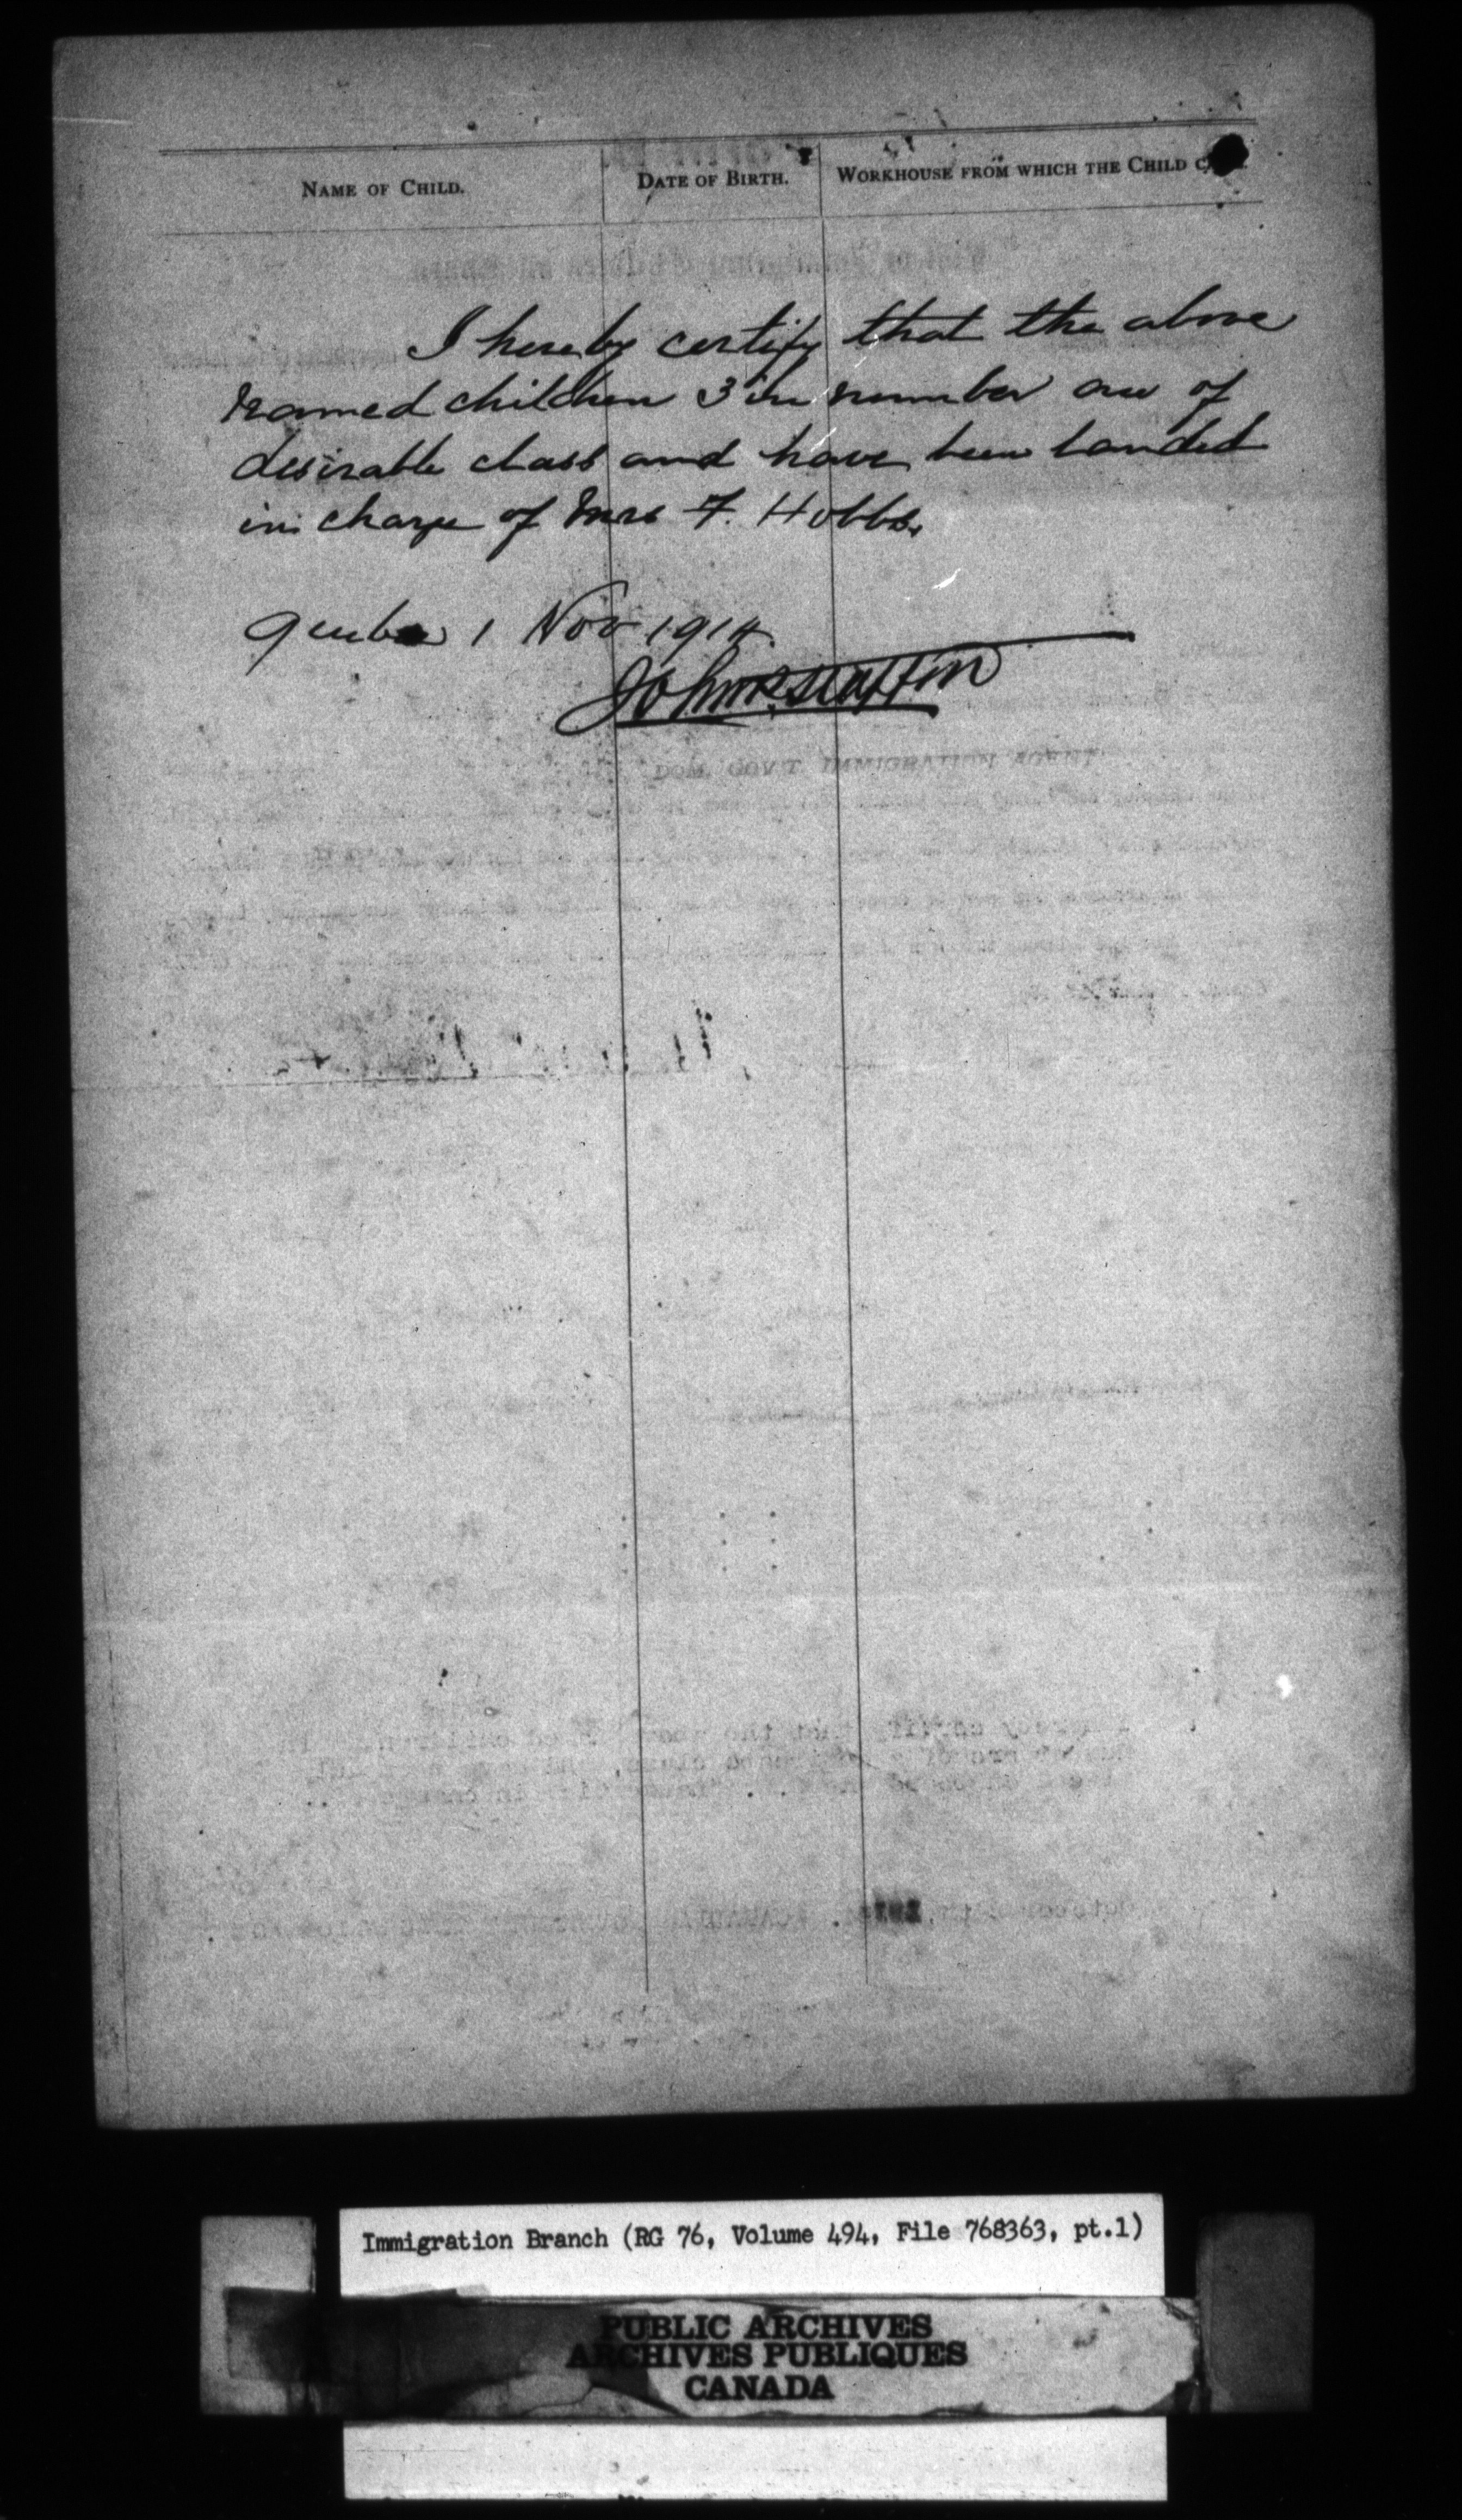 NAME OF CHILD. DATE OF BIRTH. WORKHOUSE FROM WHICH THE CHILD
I hereby certify that the above
named children 3 in number are of
desirable class and have been landed
in charge of Mrs F. Hobbs,
Quebec 1 Nov 1914
DOM. GOV'T IMMIGRATION AGENT
Immigration Branch (RG 76, Volume 494, File 768363, pt.1)
PUBLIC ARCHIVES
ARCHIVES PUBLIQUES
CANADA